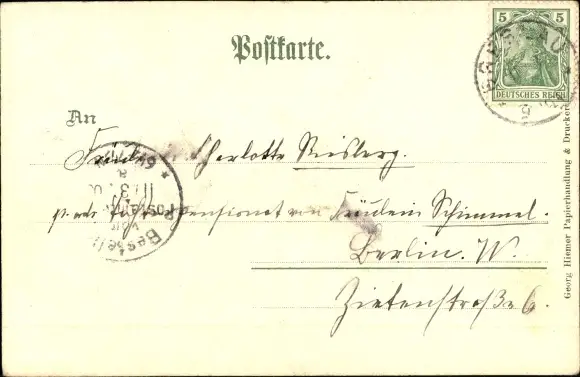 Postkarte.
5 5
DEUTSCHES REICH
An
Fräulein Charlotte Risberg.
p. adr. Töchterpensionat von Fräulein Schimmel.
Berlin. W.
Zietenstraße 6.
Bestellt
vom
Postamte
Georg Hiemer Papierhandlung & Druckerei